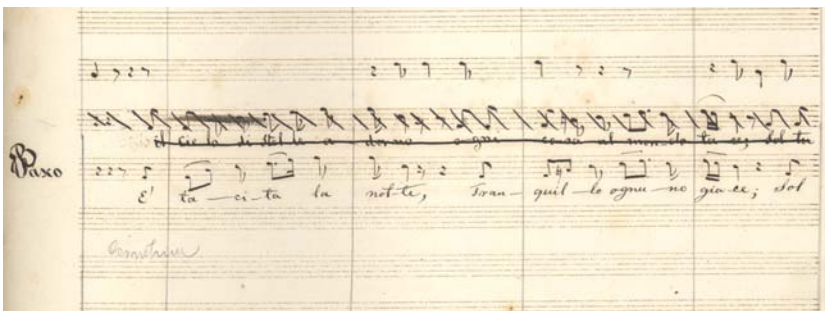 il cie lo di stel le a dorno ogni cosa al mondo ta ce; sol tu
Paxo
E' ta — ci — ta la not-te, Tran — quil — lo ognu — no gia-ce; Sol